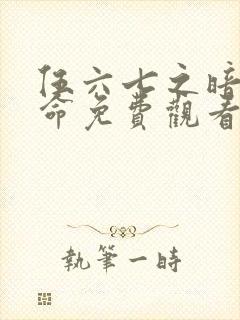 伍六七之暗
命免費觀看
執筆一時